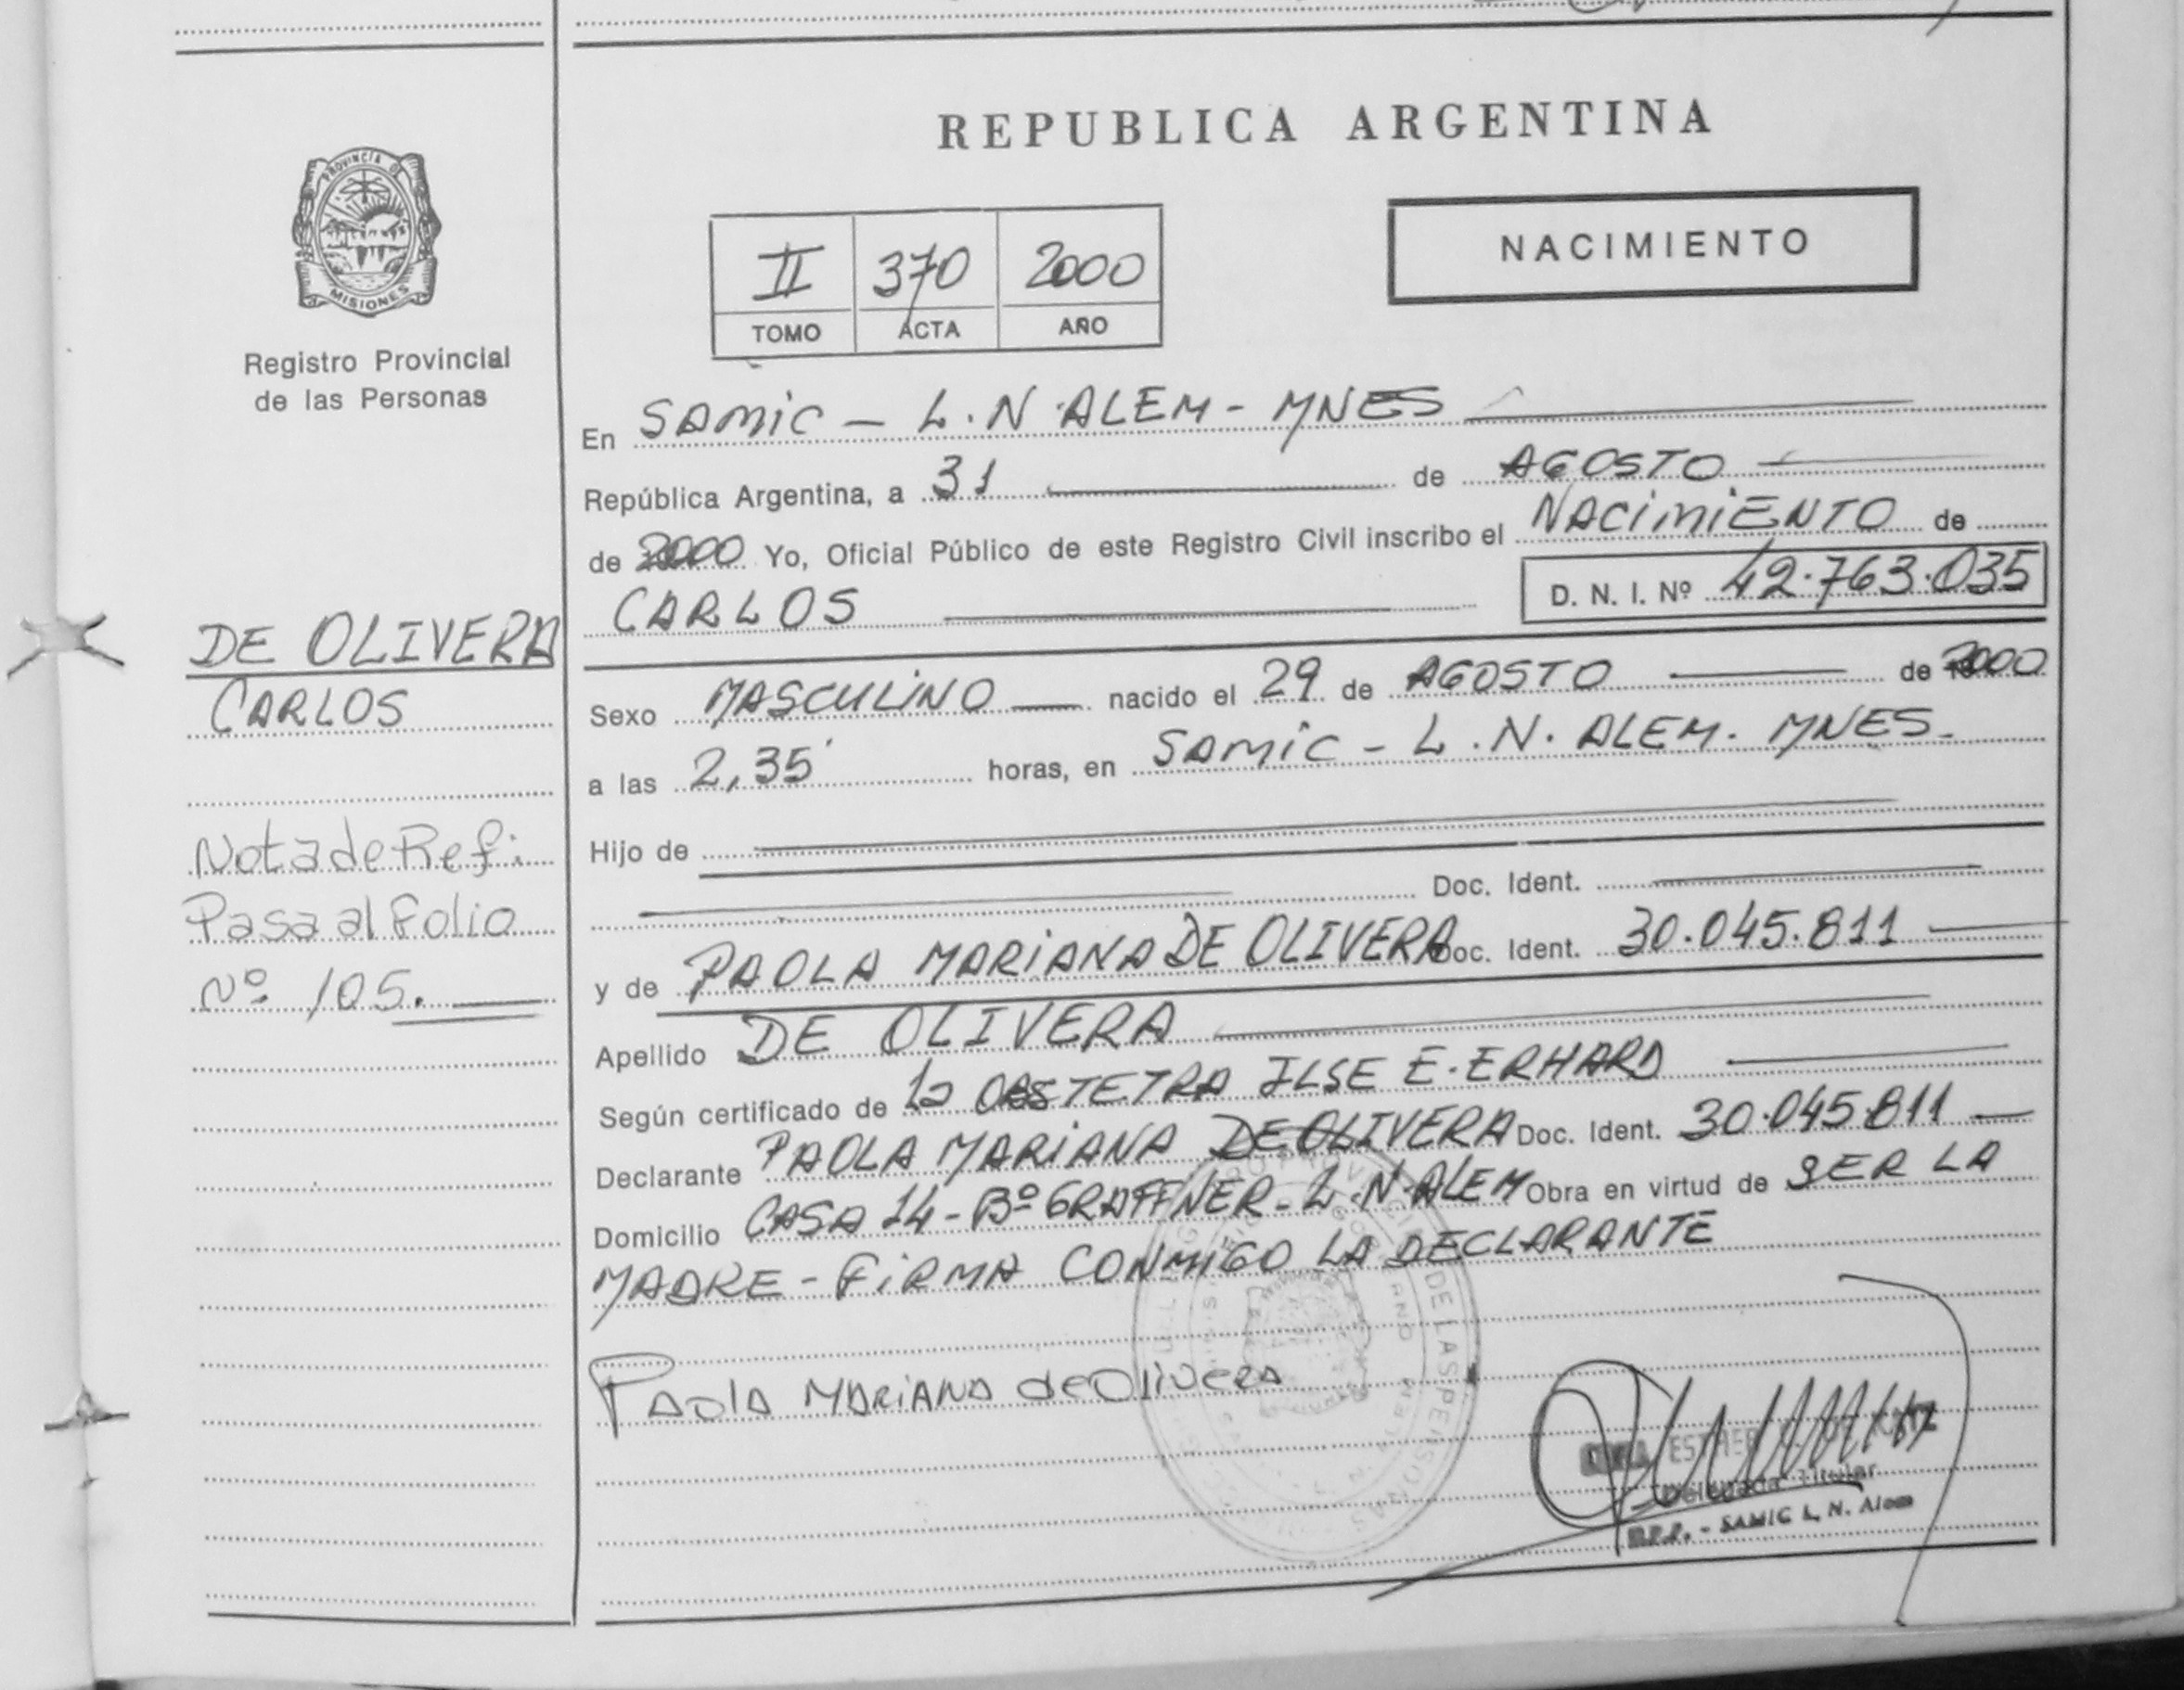 REPUBLICA ARGENTINA
PROVINCIA DE
MISIONES
Registro Provincial
de las Personas
II 370 2000
TOMO ACTA AÑO
NACIMIENTO
En SAMIC - L.N. ALEM - MNES
República Argentina, a 31 de AGOSTO
de 2000 Yo, Oficial Público de este Registro Civil inscribo el NACIMIENTO de
CARLOS D. N. I. Nº 42.763.035
DE OLIVERA
CARLOS
Sexo MASCULINO nacido el 29 de AGOSTO de 2000
a las 2,35' horas, en SAMIC - L.N. ALEM. MNES.
Hijo de
Doc. Ident.
Nota de Ref:
Pasa al Folio
Nº 105.
y de PAOLA MARIANA DE OLIVERA Doc. Ident. 30.045.811
Apellido DE OLIVERA
Según certificado de la OBSTETRA ILSE E. ERHARD
Declarante PAOLA MARIANA DE OLIVERA Doc. Ident. 30.045.811
Domicilio CASA 14 - Bº GRAFFNER - L.N. ALEM Obra en virtud de SER LA
MADRE - FIRMA CONMIGO LA DECLARANTE
Paola Mariana de Olivera
ESTHER
Delegada Titular
R.P.P. - SAMIC L. N. Alem